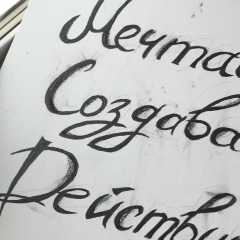 Мечта
Создава
Действи